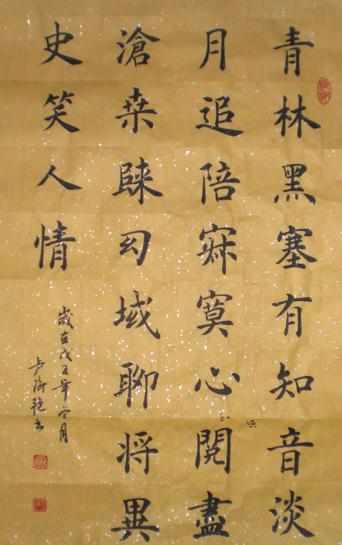 青林黑塞有知音淡
月追陪寂寞心閱盡
滄桒踈幻域聊将異
史笑人情
歲在戊子年